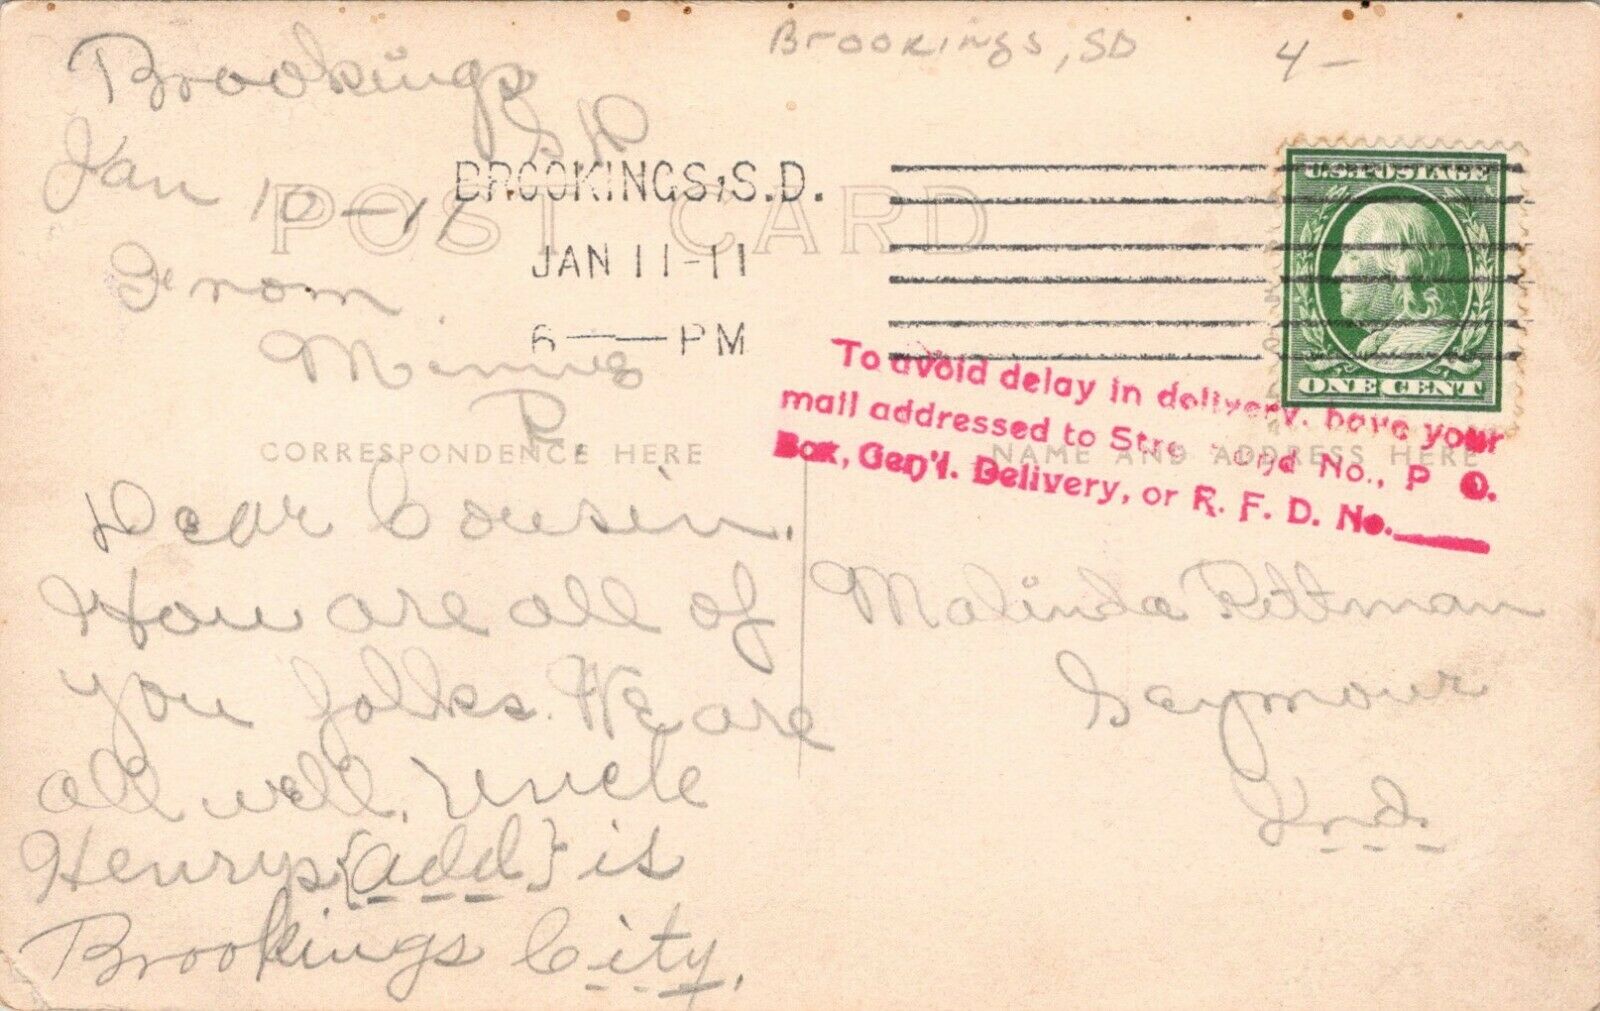 Brookings, SD 4-
Brookings
S D
Jan 10-11
From
Minnie
R.
POST CARD
BROOKINGS, S.D.
JAN 11-11
6 PM
U.S. POSTAGE
ONE CENT
To avoid delay in delivery, have your
mail addressed to Street and No., P. O.
Box, Gen'l. Delivery, or R. F. D. No.
CORRESPONDENCE HERE
NAME AND ADDRESS HERE
Dear Cousin.
How are all of
you folks. We are
all well. Uncle
Henrys {add} is
Brookings City.
Malinda Pittman
Seymour
Ind.